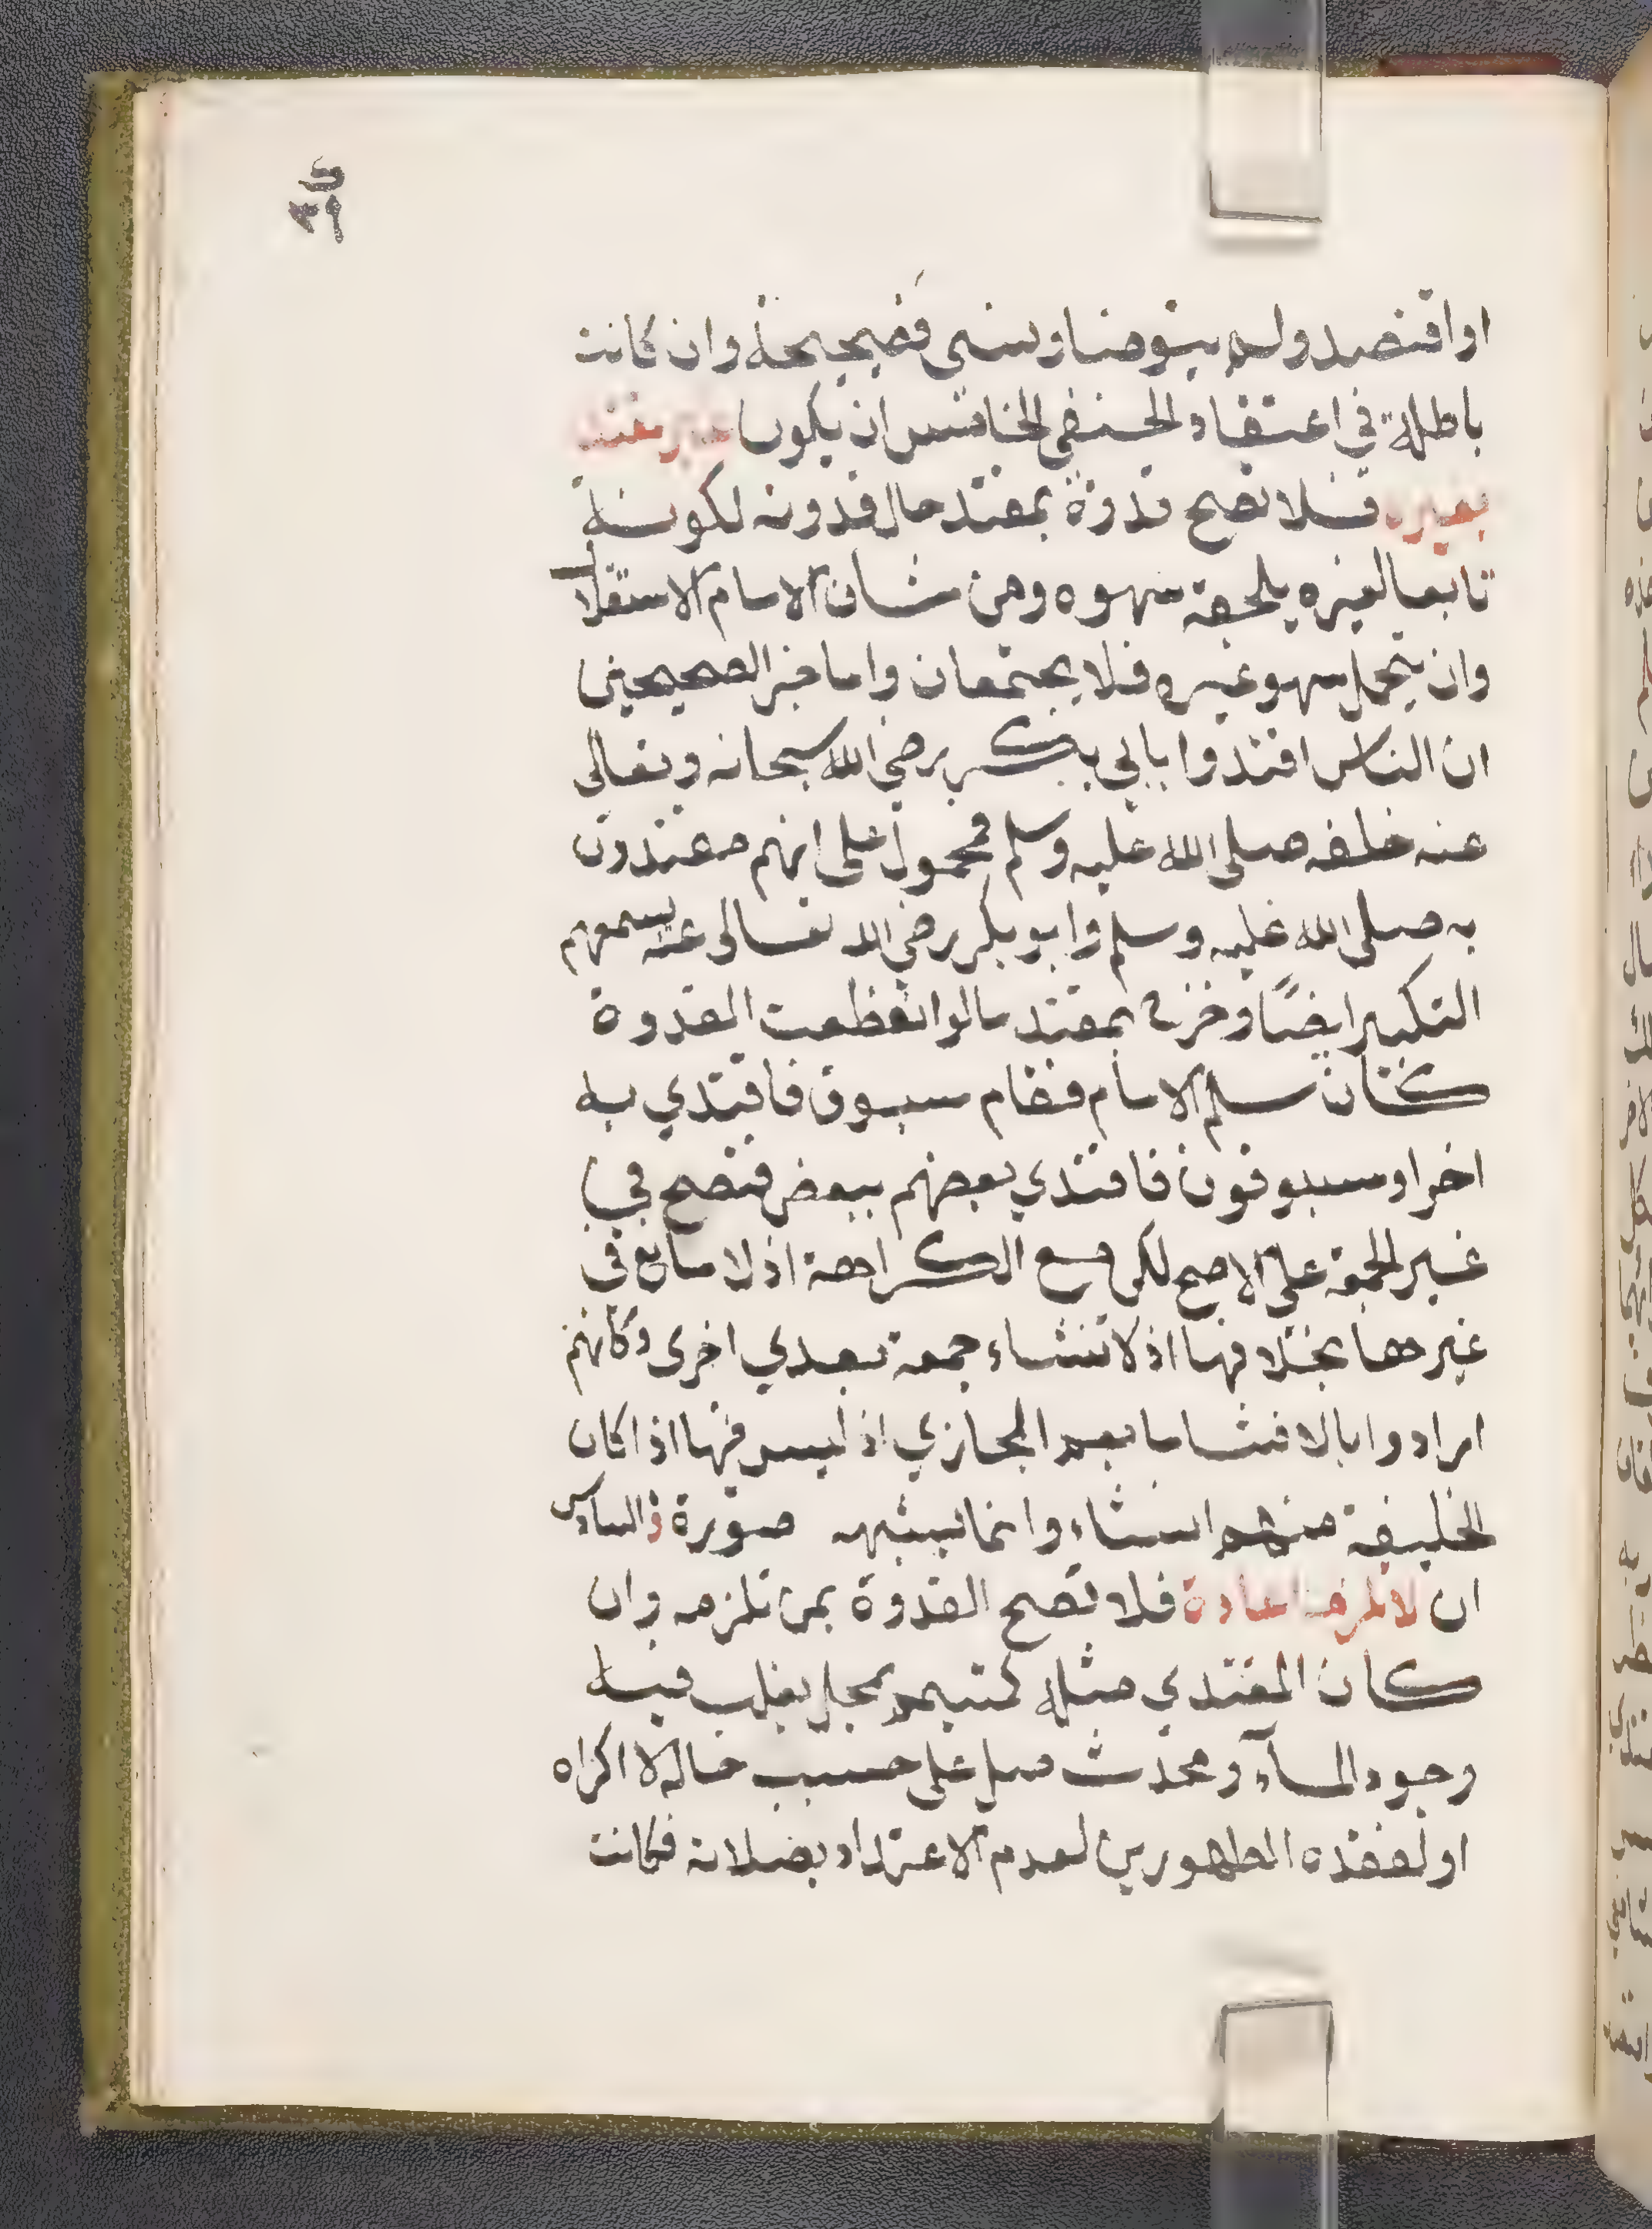 ٣٩
او اقتصد ولم يتوضا ونسى فصحيحة وان كانت
باطلة في اعتقاد الحنفي الخامس ان يكون غير مقتد
بغيره فلا تصح قدوة بمقتد حال قدوته لكونه
تابعا لغيره يلحقه سهوه ومن شان الامام الاستقلا
وان يتحمل سهو غيره فلا يجتمعان واما خبر الصحيحين
ان الناس اقتدوا بابي بكر رضي الله سبحانه وتعالى
عنه خلف صلى الله عليه وسلم فمحمول على انهم مقتدون
به صلى الله عليه وسلم وابو بكر رضي الله تعالى عنه يسمعهم
التكبير ايضًا وخرج بمقتد ما لوانقطعت القدوة
كان سلم الامام فقام مسبوق فاقتدي به
اخر او مسبوقون فاقتدي بعضهم ببعض فتصح في
غير الجمعة على الاصح لكن مع الكراهة اذ لا مانع في
غيرها بخلافها اذ لا تنشاء جمعة بعدي اخرى وكانهم
ارادوا بالانشا ما يعم المجازي اذ ليس فيها اذا كان
الخليفة منهم انشاء وانما يشبهه صورة والسادس
ان لا تلزمه اعادة فلا تصح القدوة بمن تلزمه وان
كان المقتدي مثله كمتيمم بمحل يغلب فيه
وجود المآء ومحدث صلى على حسب حاله لا اكراه
او لفقده الطهورين لعدم الاعتداد بصلاته فكانت